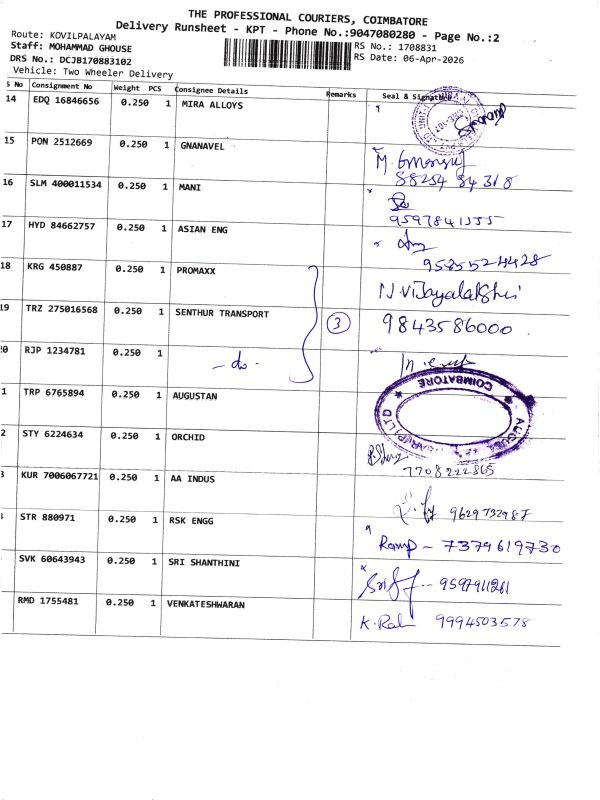 THE PROFESSIONAL COURIERS, COIMBATORE
Delivery Runsheet - KPT - Phone No.:9047080280 - Page No.:2
Route: KOVILPALAYAM
Staff: MOHAMMAD GHOUSE
RS No.: 1708831
DRS No.: DCJB170883102
RS Date: 06-Apr-2026
Vehicle: Two Wheeler Delivery
S No Consignment No Weight PCS Consignee Details Remarks Seal & Signature
14 EDQ 16846656 0.250 1 MIRA ALLOYS
15 PON 2512669 0.250 1 GNANAVEL
88254 84318
16 SLM 400011534 0.250 1 MANI
9597841555
17 HYD 84662757 0.250 1 ASIAN ENG
9585524428
18 KRG 450887 0.250 1 PROMAXX
N. Vijayalakshmi
19 TRZ 275016568 0.250 1 SENTHUR TRANSPORT 3 9843586000
20 RJP 1234781 0.250 1
- do -
COIMBATORE
1 TRP 6765894 0.250 1 AUGUSTAN
2 STY 6224634 0.250 1 ORCHID
7708222865
3 KUR 7006067721 0.250 1 AA INDUS
9629732987
STR 880971 0.250 1 RSK ENGG
Ramp - 7379619730
SVK 60643943 0.250 1 SRI SHANTHINI
9597911261
RMD 1755481 0.250 1 VENKATESHWARAN
9994503578